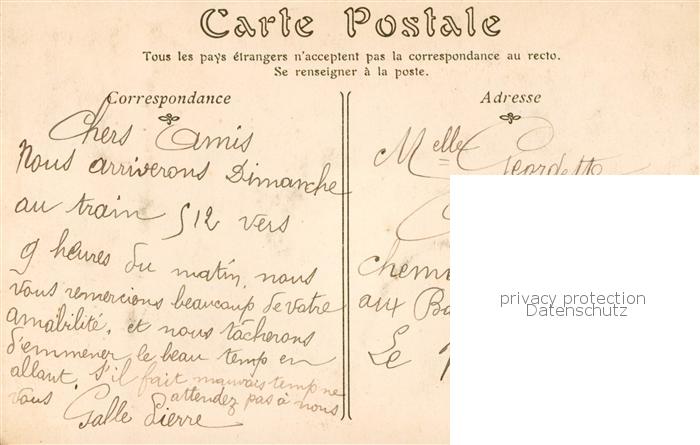 Carte Postale
Tous les pays étrangers n'acceptent pas la correspondance au recto.
Se renseigner à la poste.
Correspondance
Chers Amis
Nous arriverons Dimanche
au train 512 vers
9 heures du matin, nous
vous remercions beaucoup de votre
amabilité, et nous tâcherons
d'emmener le beau temp en
allant, s'il fait mauvais temp ne
vous attendez pas à nous
Galle Pierre
Adresse
Melle Geordette
chemi
aux Ba
Le
privacy protection
Datenschutz